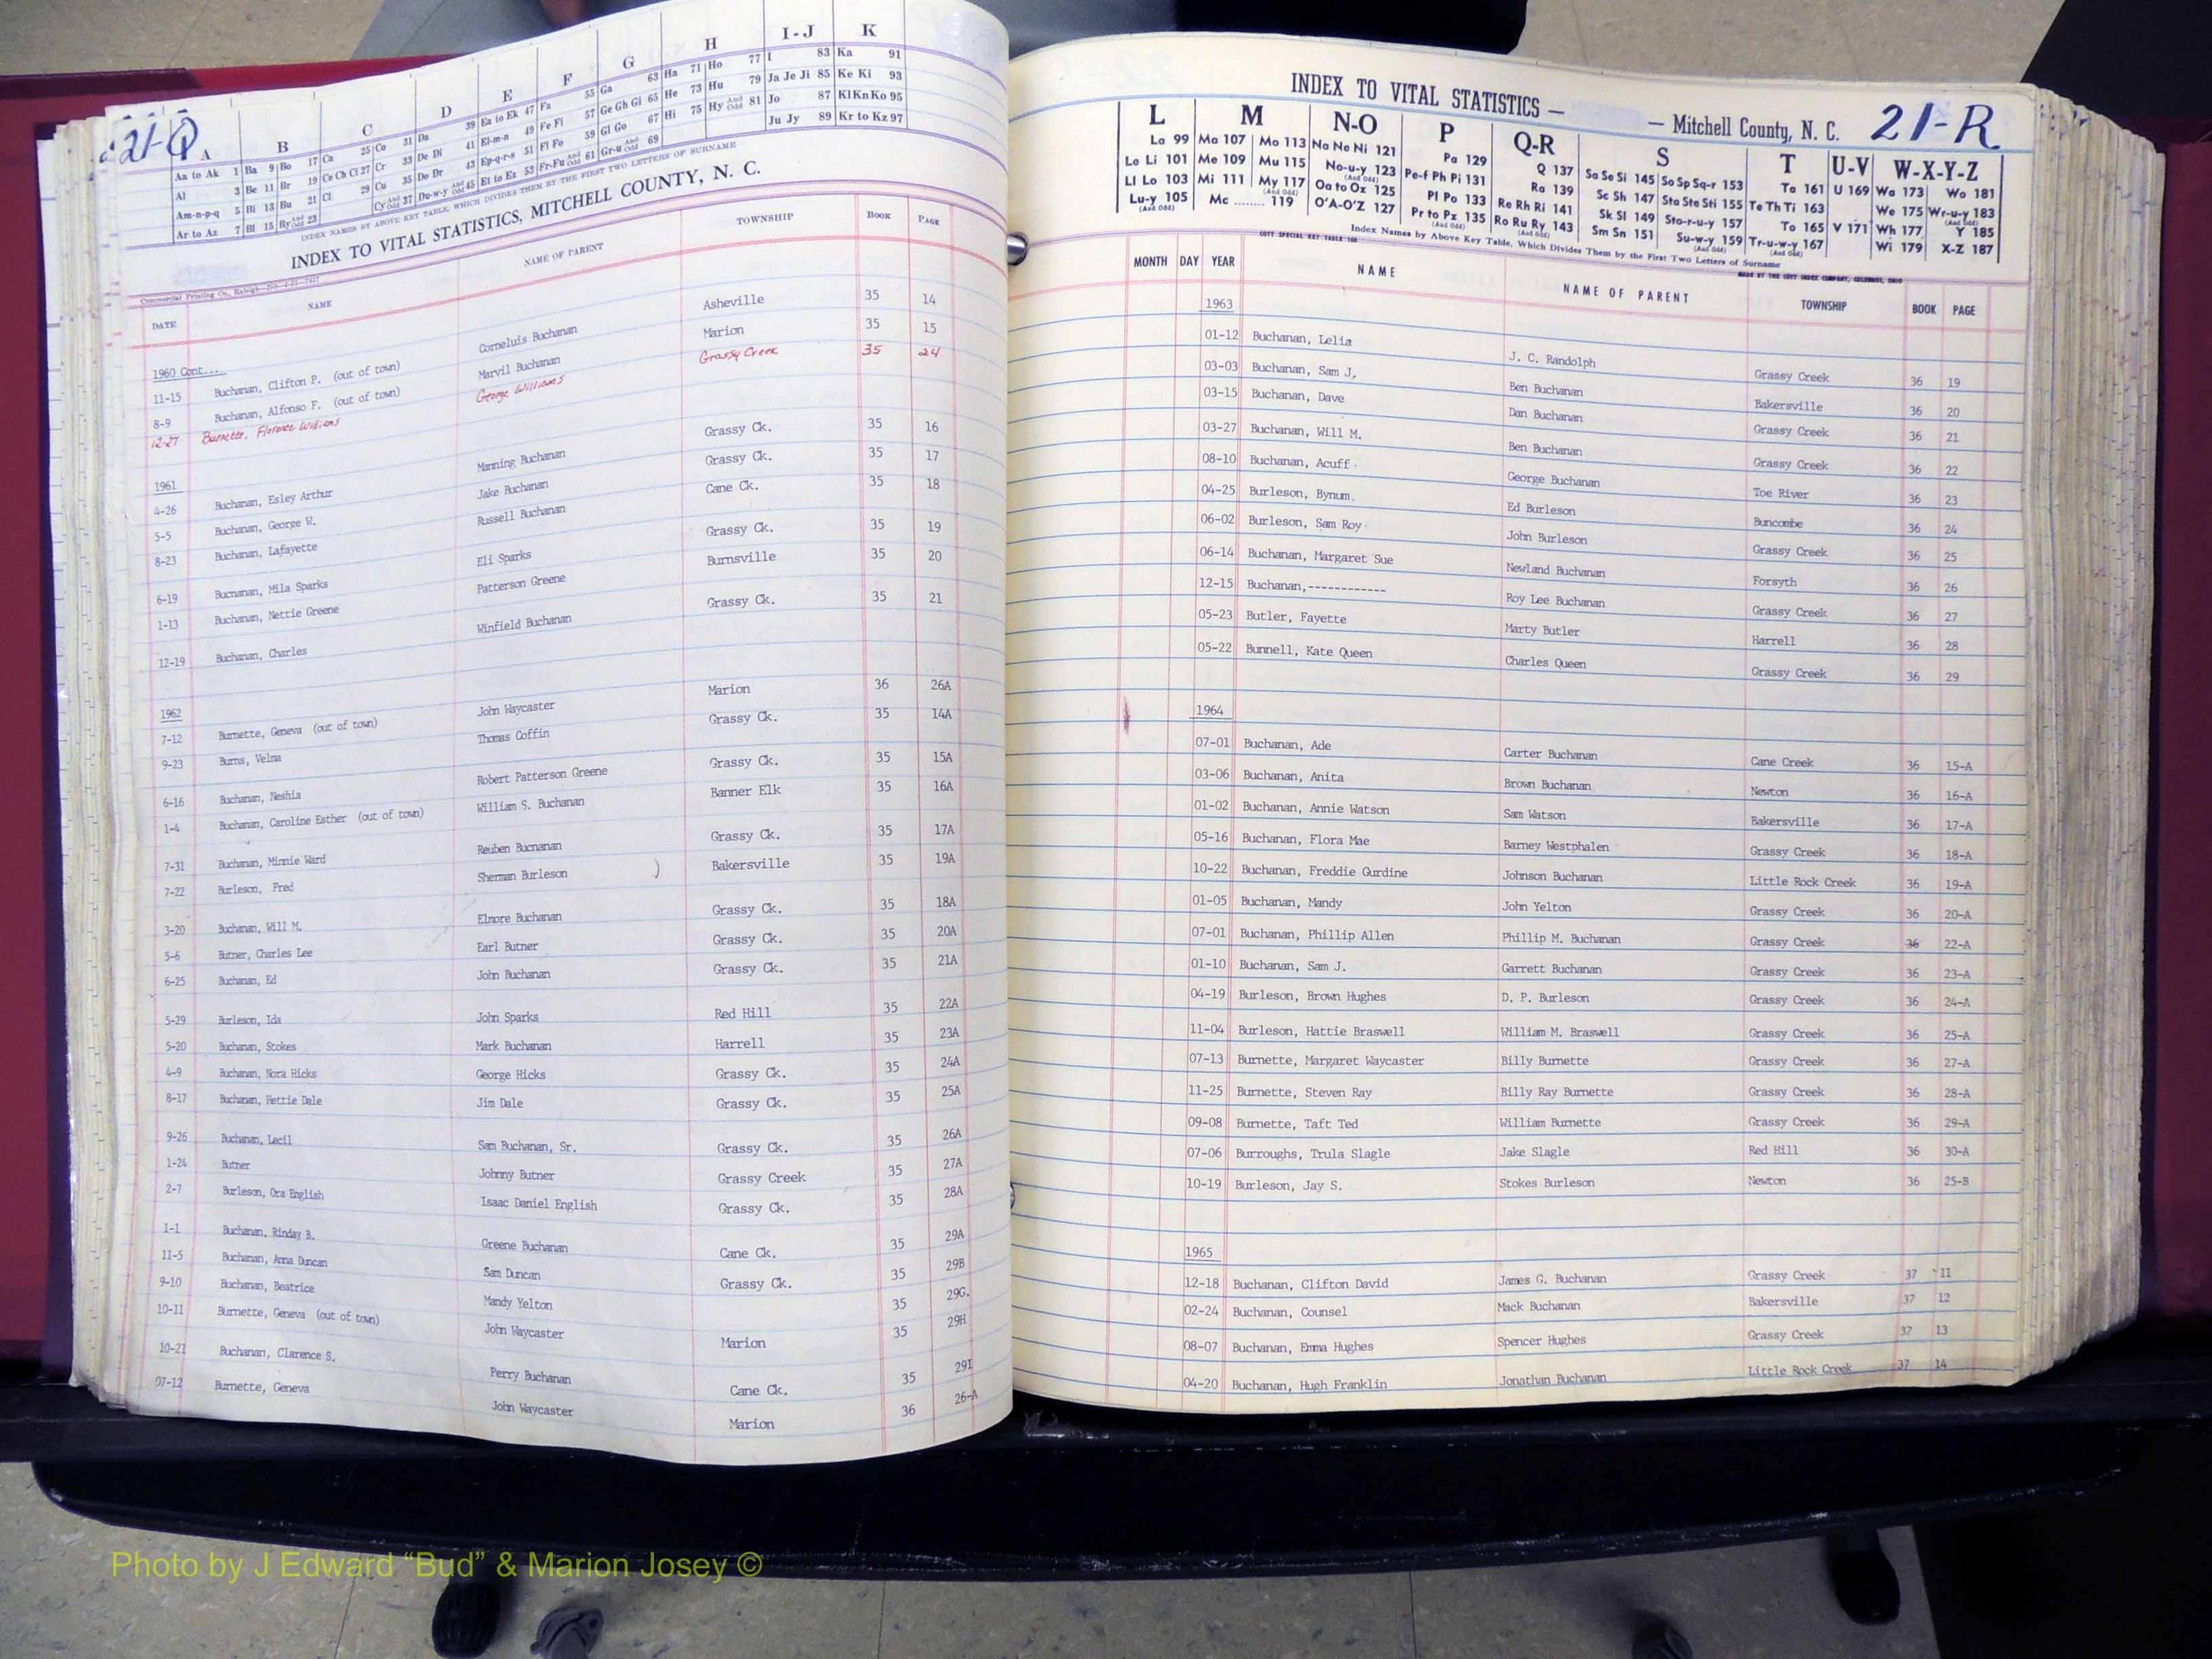 21-Q
A B C D E F G H I-J K
Aa to Ak 1 Ba 9 Bo 17 Ca 25 Co 31 Da 39 Ea to Ek 47 Fa 55 Ga 63 Ha 71 Ho 77 I 83 Ka 91
Al 3 Be 11 Br 19 Ce Ch Ci 27 Cr 33 De Di 41 El-m-n 49 Fe Fi 57 Ge Gh Gi 65 He 73 Hu 79 Ja Je Ji 85 Ke Ki 93
Am-n-p-q 5 Bi 13 Bu 21 Cl 29 Cu 35 Do Dr 43 Ep-q-r-s 51 Fl Fo 59 Gl Go 67 Hi 75 Hy And Odd 81 Jo 87 Kl Kn Ko 95
Ar to Az 7 Bl 15 By And Odd 23 Cy And Odd 37 Du-w-y And Odd 45 Et to Ez 53 Fr-Fu And Odd 61 Gr-u And Odd 69 Ju Jy 89 Kr to Kz 97
INDEX NAMES BY ABOVE KEY TABLE, WHICH DIVIDES THEM BY THE FIRST TWO LETTERS OF SURNAME
INDEX TO VITAL STATISTICS, MITCHELL COUNTY, N. C.
DATE NAME NAME OF PARENT TOWNSHIP BOOK PAGE
1960 Cont....
11-15 Buchanan, Clifton P. (out of town) Corneluis Buchanan Asheville 35 14
8-9 Buchanan, Alfonso F. (out of town) Marvil Buchanan Marion 35 15
12-27 Burnette, Florence Williams George Williams Grassy Creek 35 24
1961
4-26 Buchanan, Esley Arthur Manning Buchanan Grassy Ck. 35 16
5-5 Buchanan, George W. Jake Buchanan Grassy Ck. 35 17
8-23 Buchanan, Lafayette Russell Buchanan Cane Ck. 35 18
6-19 Bucnanan, Mila Sparks Eli Sparks Grassy Ck. 35 19
1-13 Buchanan, Nettie Greene Patterson Greene Burnsville 35 20
12-19 Buchanan, Charles Winfield Buchanan Grassy Ck. 35 21
1962
7-12 Burnette, Geneva (out of town) John Waycaster Marion 36 26A
9-23 Burns, Velma Thomas Coffin Grassy Ck. 35 14A
6-16 Buchanan, Neshia Robert Patterson Greene Grassy Ck. 35 15A
1-4 Buchanan, Caroline Esther (out of town) William S. Buchanan Banner Elk 35 16A
7-31 Buchanan, Minnie Ward Reuben Bucnanan Grassy Ck. 35 17A
7-22 Burleson, Fred Sherman Burleson ) Bakersville 35 19A
3-20 Buchanan, Will M. Elmore Buchanan Grassy Ck. 35 18A
5-6 Butner, Charles Lee Earl Butner Grassy Ck. 35 20A
6-25 Buchanan, Ed John Buchanan Grassy Ck. 35 21A
5-29 Burleson, Ida John Sparks Red Hill 35 22A
5-20 Buchanan, Stokes Mark Buchanan Harrell 35 23A
4-9 Buchanan, Nora Hicks George Hicks Grassy Ck. 35 24A
8-17 Buchanan, Hettie Dale Jim Dale Grassy Ck. 35 25A
9-26 Buchanan, Lecil Sam Buchanan, Sr. Grassy Ck. 35 26A
1-24 Butner Johnny Butner Grassy Creek 35 27A
2-7 Burleson, Ora English Isaac Daniel English Grassy Ck. 35 28A
1-1 Buchanan, Rinday B. Greene Buchanan Cane Ck. 35 29A
11-5 Buchanan, Anna Duncan Sam Duncan Grassy Ck. 35 29B
9-10 Buchanan, Beatrice Mandy Yelton 35 29G.
10-11 Burnette, Geneva (out of town) John Waycaster Marion 35 29H
10-21 Buchanan, Clarence S. Perry Buchanan Cane Ck. 35 29I
07-12 Burnette, Geneva John Waycaster Marion 36 26-A
INDEX TO VITAL STATISTICS — — Mitchell County, N. C. 21-R
L M N-O P Q-R S T U-V W-X-Y-Z
La 99 Ma 107 Mo 113 Na Ne Ni 121 Pa 129 Q 137 Sa Se Si 145 So Sp Sq-r 153 Ta 161 U 169 Wa 173 Wo 181
Le Li 101 Me 109 Mu 115 No-u-y 123 (And Odd) Pe-f Ph Pi 131 Ra 139 Sc Sh 147 Sta Ste Sti 155 Te Th Ti 163 We 175 Wr-u-y 183 (And Odd)
Ll Lo 103 Mi 111 My 117 (And Odd) Oa to Oz 125 Pl Po 133 Re Rh Ri 141 Sk Sl 149 Sto-r-u-y 157 To 165 V 171 Wh 177 Y 185
Lu-y 105 (And Odd) Mc ........ 119 O'A-O'Z 127 Pr to Pz 135 (And Odd) Ro Ru Ry 143 (And Odd) Sm Sn 151 Su-w-y 159 (And Odd) Tr-u-w-y 167 (And Odd) Wi 179 X-Z 187
Index Names by Above Key Table, Which Divides Them by the First Two Letters of Surname
COTT SPECIAL KEY TABLE 100 MADE BY THE COTT INDEX COMPANY, COLUMBUS, OHIO
MONTH DAY YEAR NAME NAME OF PARENT TOWNSHIP BOOK PAGE
1963
01-12 Buchanan, Lelia J. C. Randolph Grassy Creek 36 19
03-03 Buchanan, Sam J. Ben Buchanan Bakersville 36 20
03-15 Buchanan, Dave Dan Buchanan Grassy Creek 36 21
03-27 Buchanan, Will M. Ben Buchanan Grassy Creek 36 22
08-10 Buchanan, Acuff George Buchanan Toe River 36 23
04-25 Burleson, Bynum Ed Burleson Buncombe 36 24
06-02 Burleson, Sam Roy John Burleson Grassy Creek 36 25
06-14 Buchanan, Margaret Sue Newland Buchanan Forsyth 36 26
12-15 Buchanan,------------ Roy Lee Buchanan Grassy Creek 36 27
05-23 Butler, Fayette Marty Butler Harrell 36 28
05-22 Bunnell, Kate Queen Charles Queen Grassy Creek 36 29
1964
07-01 Buchanan, Ade Carter Buchanan Cane Creek 36 15-A
03-06 Buchanan, Anita Brown Buchanan Newton 36 16-A
01-02 Buchanan, Annie Watson Sam Watson Bakersville 36 17-A
05-16 Buchanan, Flora Mae Barney Westphalen Grassy Creek 36 18-A
10-22 Buchanan, Freddie Gurdine Johnson Buchanan Little Rock Creek 36 19-A
01-05 Buchanan, Mandy John Yelton Grassy Creek 36 20-A
07-01 Buchanan, Phillip Allen Phillip M. Buchanan Grassy Creek 36 22-A
01-10 Buchanan, Sam J. Garrett Buchanan Grassy Creek 36 23-A
04-19 Burleson, Brown Hughes D. P. Burleson Grassy Creek 36 24-A
11-04 Burleson, Hattie Braswell William M. Braswell Grassy Creek 36 25-A
07-13 Burnette, Margaret Waycaster Billy Burnette Grassy Creek 36 27-A
11-25 Burnette, Steven Ray Billy Ray Burnette Grassy Creek 36 28-A
09-08 Burnette, Taft Ted William Burnette Grassy Creek 36 29-A
07-06 Burroughs, Trula Slagle Jake Slagle Red Hill 36 30-A
10-19 Burleson, Jay S. Stokes Burleson Newton 36 25-B
1965
12-18 Buchanan, Clifton David James G. Buchanan Grassy Creek 37 11
02-24 Buchanan, Counsel Mack Buchanan Bakersville 37 12
08-07 Buchanan, Emma Hughes Spencer Hughes Grassy Creek 37 13
04-20 Buchanan, Hugh Franklin Jonathan Buchanan Little Rock Creek 37 14
Photo by J Edward “Bud” & Marion Josey ©